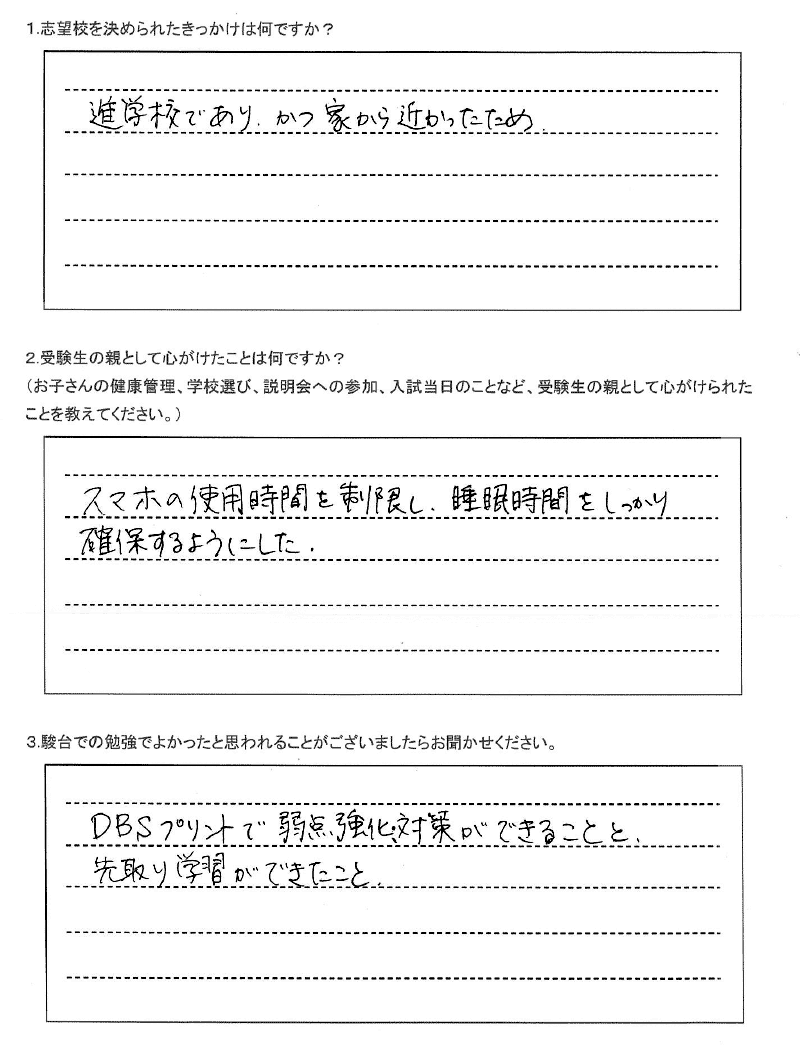 1.志望校を決められたきっかけは何ですか？
進学校であり、かつ家から近かったため.
2.受験生の親として心がけたことは何ですか？
（お子さんの健康管理、学校選び、説明会への参加、入試当日のことなど、受験生の親として心がけられた
ことを教えてください。）
スマホの使用時間を制限し、睡眠時間をしっかり
確保するようにした.
3.駿台での勉強でよかったと思われることがございましたらお聞かせください。
DBSプリントで弱点強化対策ができることと、
先取り学習ができたこと.